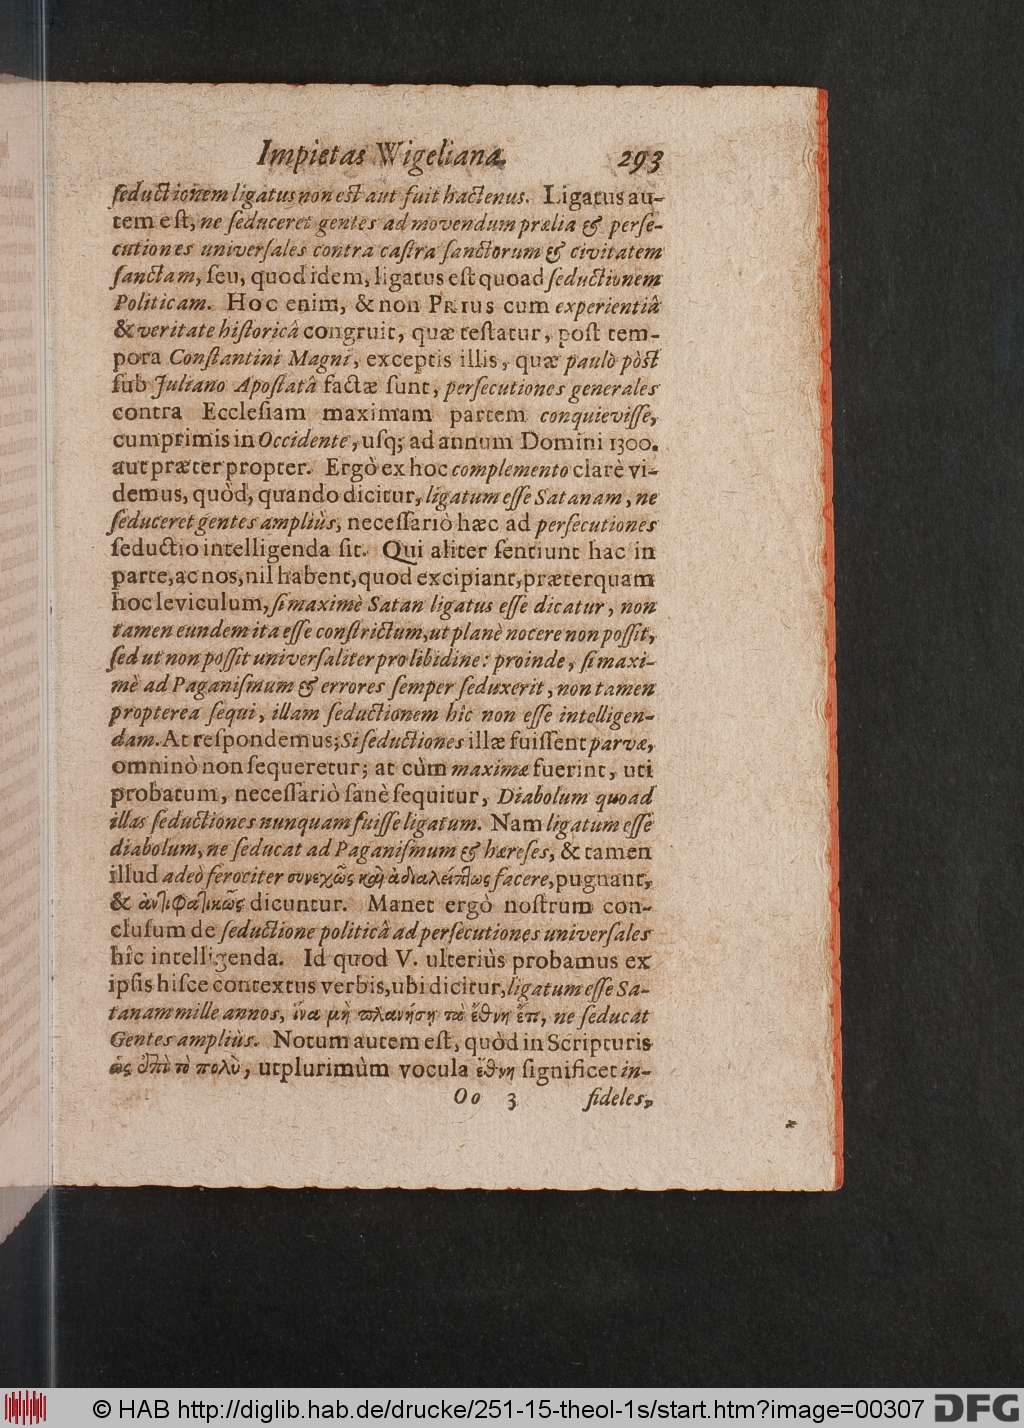 Impietas Wigeliana. 293
ſeductionem ligatus non eſt aut fuit hactenus. Ligatus au-
tem eſt, ne ſeduceret gentes ad movendum prælia & perſe-
cutiones univerſales contra caſtra ſanctorum & civitatem
ſanctam, ſeu, quod idem, ligatus eſt quoad ſeductionem
Politicam. Hoc enim, & non PRIUS cum experientiâ
& veritate hiſtoricâ congruit, quæ teſtatur, poſt tem-
pora Conſtantini Magni, exceptis illis, quæ paulò pòſt
ſub Juliano Apoſtatâ factæ ſunt, perſecutiones generales
contra Eccleſiam maximam partem conquieviſſe,
cumprimis in Occidente, uſq; ad annum Domini 1300.
aut præter propter. Ergò ex hoc complemento clarè vi-
demus, quòd, quando dicitur, ligatum eſſe Satanam, ne
ſeduceret gentes ampliùs, neceſſariò hæc ad perſecutiones
ſeductio intelligenda ſit. Qui aliter ſentiunt hac in
parte, ac nos, nil habent, quod excipiant, præterquam
hoc leviculum, ſi maximè Satan ligatus eſſe dicatur, non
tamen eundem ita eſſe conſtrictum, ut planè nocere non poſſit,
ſed ut non poſſit univerſaliter pro libidine: proinde, ſi maxi-
mè ad Paganiſmum & errores ſemper ſeduxerit, non tamen
propterea ſequi, illam ſeductionem hîc non eſſe intelligen-
dam. At reſpondemus; Si ſeductiones illæ fuiſſent parvæ,
omninò non ſequeretur; at cùm maximæ fuerint, uti
probatum, neceſſariò ſanè ſequitur, Diabolum quoad
illas ſeductiones nunquam fuiſſe ligatum. Nam ligatum eſſe
diabolum, ne ſeducat ad Paganiſmum & hæreſes, & tamen
illud adeò ferociter συνεχῶς καὶ ἀδιαλείπτως facere, pugnant,
& ἀντιφατικῶς dicuntur. Manet ergò noſtrum con-
cluſum de ſeductione politicâ ad perſecutiones univerſales
hîc intelligenda. Id quod V. ulteriùs probamus ex
ipſis hiſce contextus verbis, ubi dicitur, ligatum eſſe Sa-
tanam mille annos, ἵνα μὴ πλανήσῃ τὰ ἔθνη ἔτι, ne ſeducat
Gentes ampliùs. Notum autem eſt, quòd in Scripturis
ὡς ἐπὶ τὸ πολὺ, utplurimùm vocula ἔθνη ſignificet in-
Oo 3 fideles,
© HAB http://diglib.hab.de/drucke/251-15-theol-1s/start.htm?image=00307
DFG